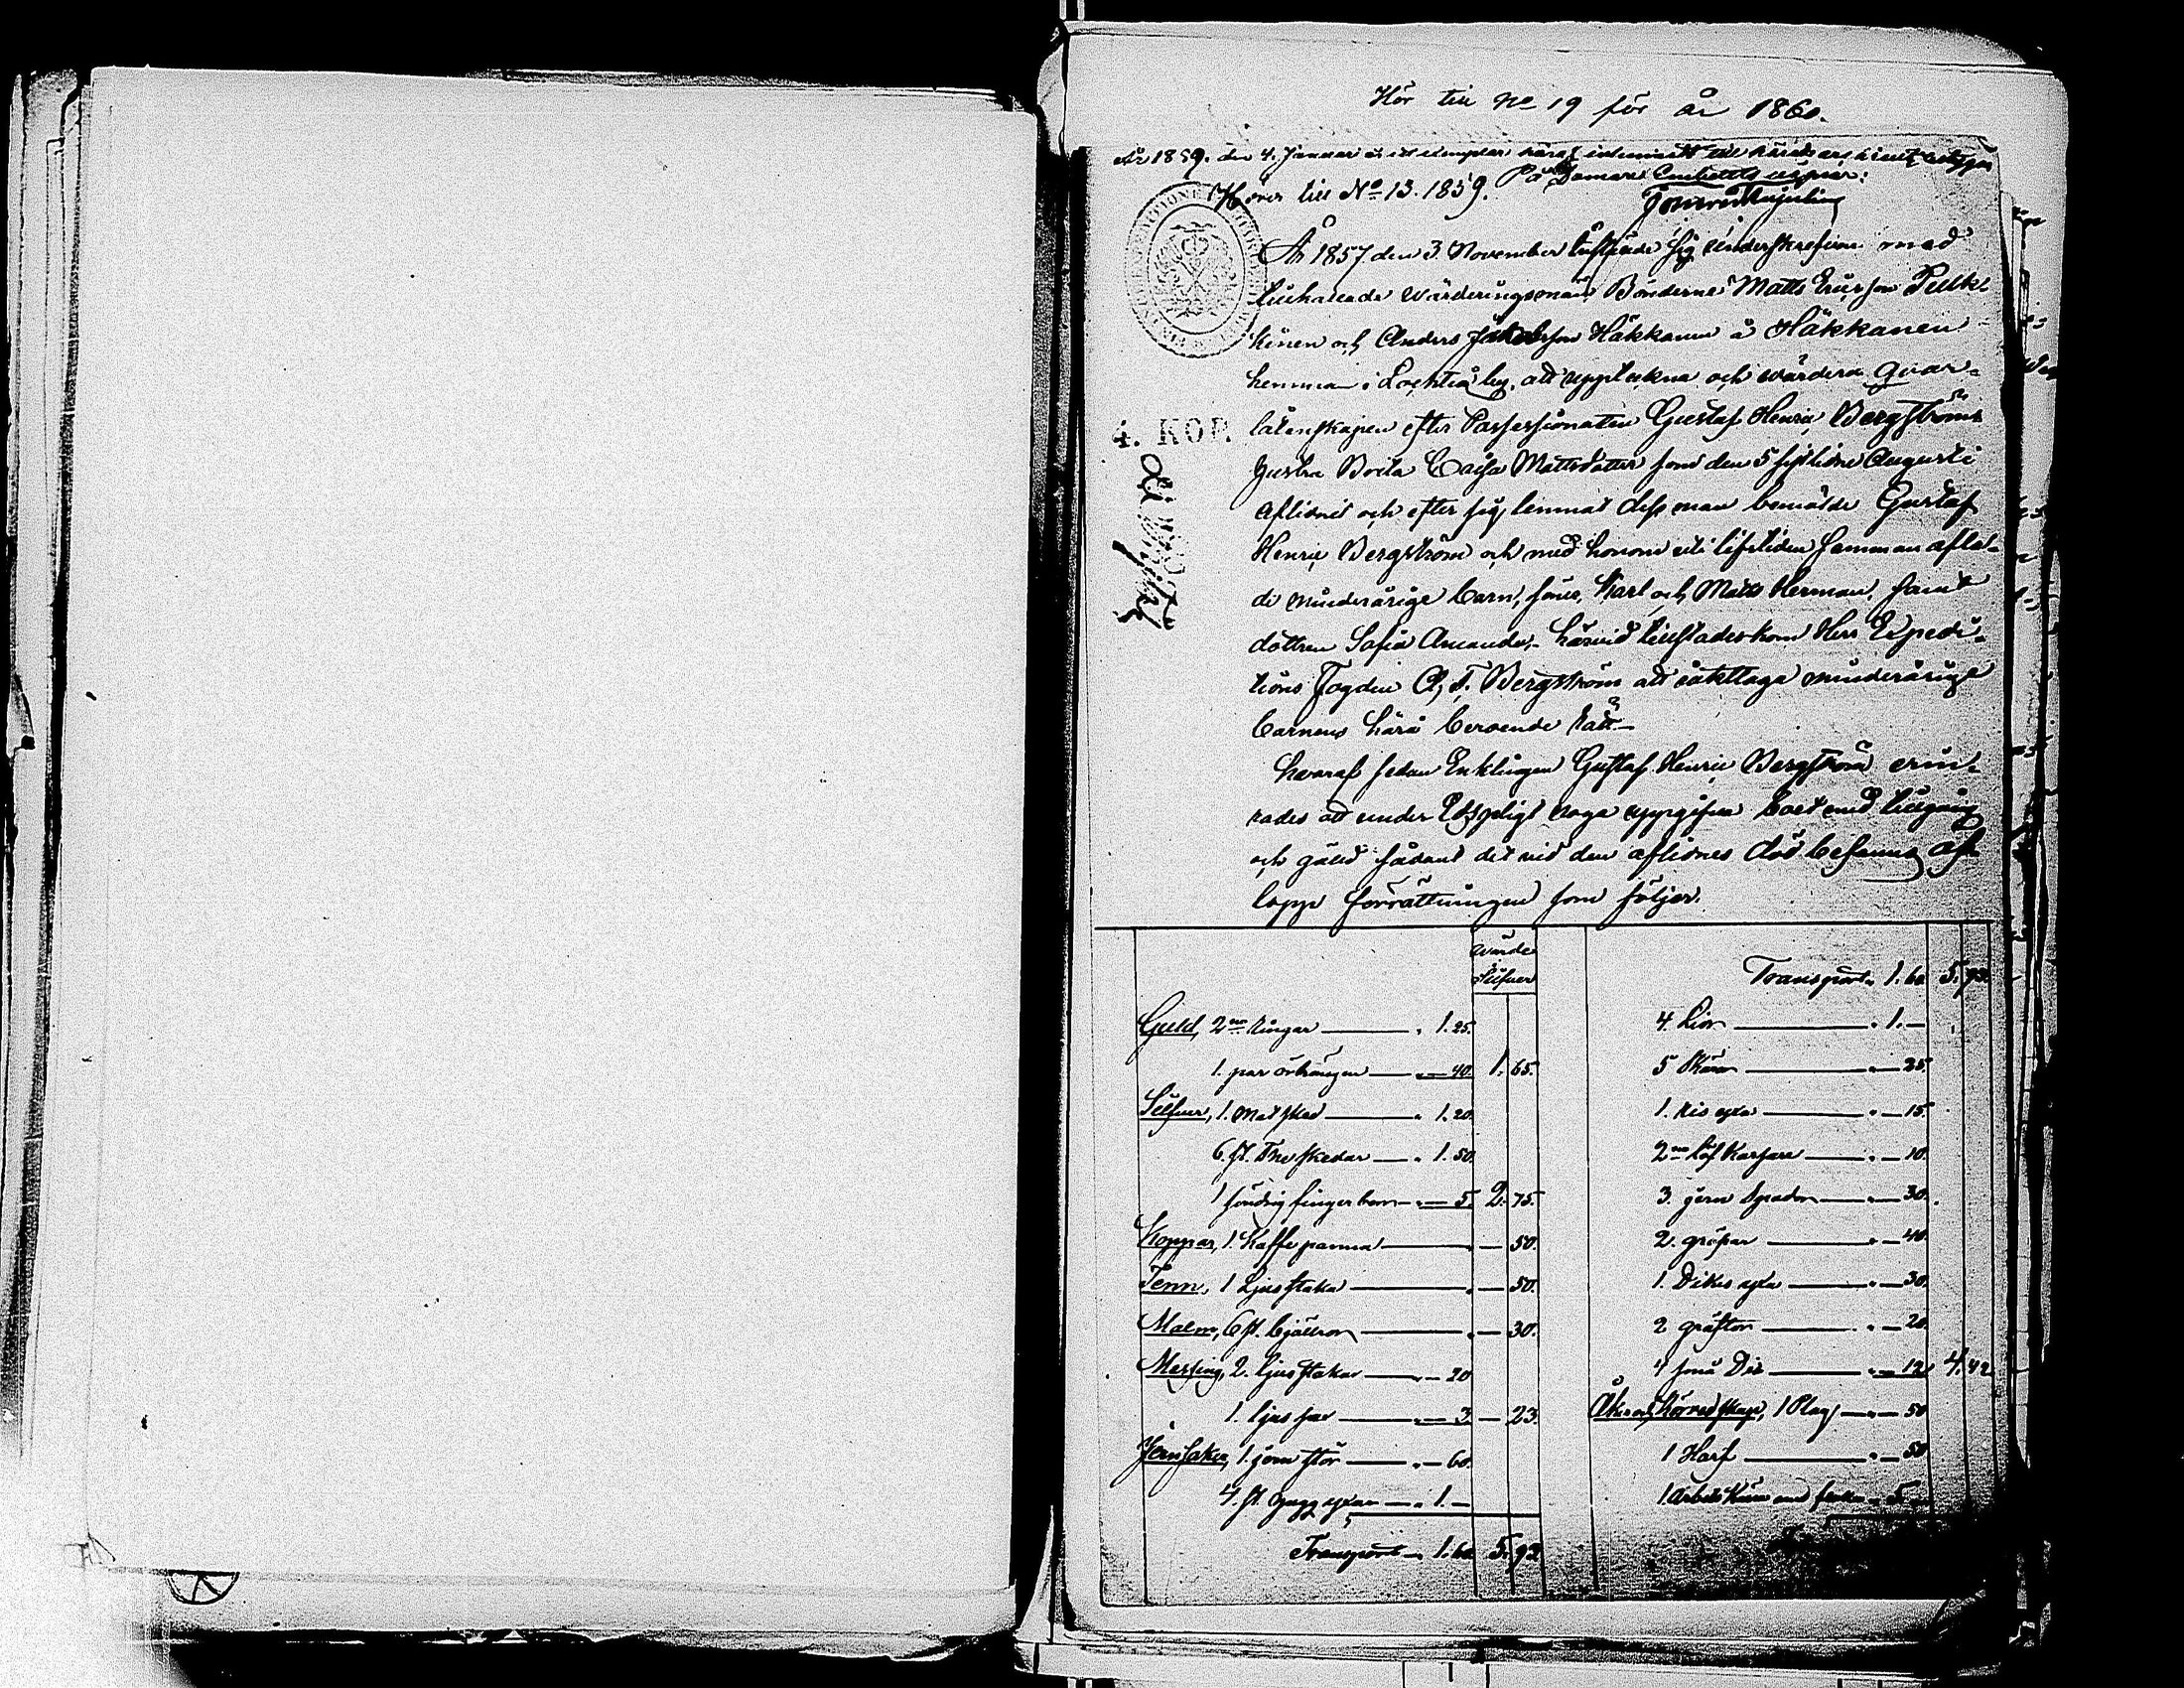 Hör till No 19 för år 1860.
År 1859. den 4. Januari är ett exemplar häraf inlemnadt till häradsarkivet, betygar
På Domare Embetets vägnar:
Hörer till No 13. 1859.
År 1857 den 3 November instälde sig undertecknad med
tillkallade värderingsmän Bönderne Matts Ericsson Pulk-
kinen och Anders Jakobsson Häkkanen å Häkkanen
hemman i Lochteå by, att uppteckna och värdera qvar-
låtenskapen efter Possessionaten Gustaf Henric Bergströms
hustru Brita Caisa Mattsdotter som den 5 sistlidne Augusti
aflidnit och efter sig lemnat dess man bemälde Gustaf
Henric Bergström och med honom uti lifstiden samman aflat-
de minderårige barn, söner, Karl och Matts Herman, samt
dottren Sofia Amanda,- härvid tillstädeskom Herr Expedi-
tions Fogden A. F. Bergström att iakttaga minderårige
barnens härå beroende rätt.-
hvaraf sedan Enklingen Gustaf Henric Bergström erin-
rades att under Edspligt noga uppgifva boet med tillgång
och gäld sådant det vid den aflidnes död befanns af-
lopp förrättningen som följer.
4. KOP.
Värde
Silfver
Guld, 2ne ringar — " 1. 25.
1. par örhängen — " — 40. 1. 65.
Silfver, 1. Matsked — " 1. 20.
6. st. Theskedar — " 1. 50.
1 söndrig fingerborr — " — 5. 2. 75.
Koppar, 1. Kaffepanna — " — 50.
Tenn, 1 Ljusstaka — " — 50.
Malm, 6 st. bjällror — " — 30.
Messing, 2. ljusstakar — " — 20
1. ljussax — " — 3. — 23.
Jernsaker, 1. jernstör — " — 60.
4. st. hugg yxor — " 1. —
Transport " 1. 60. 5. 93.
Transport " 1. 60. 5. 93.
4. Liar — " 1. —
5 Skäror — " — 25.
1. ris yxa — " — 15.
2ne löf karfvare — " — 10.
3. jern Spador — " — 30.
2. grepar — " — 40.
1. Dikes yxa — " — 30.
2 gräftor — " — 20.
4 små Do — " — 12. 4. 42.
Åker och Körredskap, 1 Plog — " — 50
1 Harf — " — 50